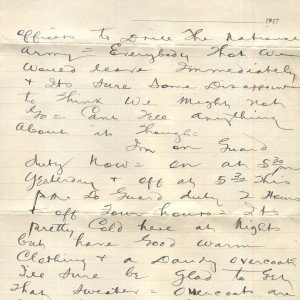 1917
officers to Drill The National
Army = Everybody That We
Would leave Immediately
& Its Sure Some Disappointment
to Think We Might Not
Go = Can't Tell anything
About it Though =
I'm on Guard
duty Now = on at 5 30 PM
Yesterday & off at 5 30 This
P.M. to Guard duty 2 Hours
& off Four hours = Its
pretty Cold here at Nights
but have Good warm
Clothing & a Dandy overcoat
I'll Sure be Glad to Get
That Sweater = Overcoats are